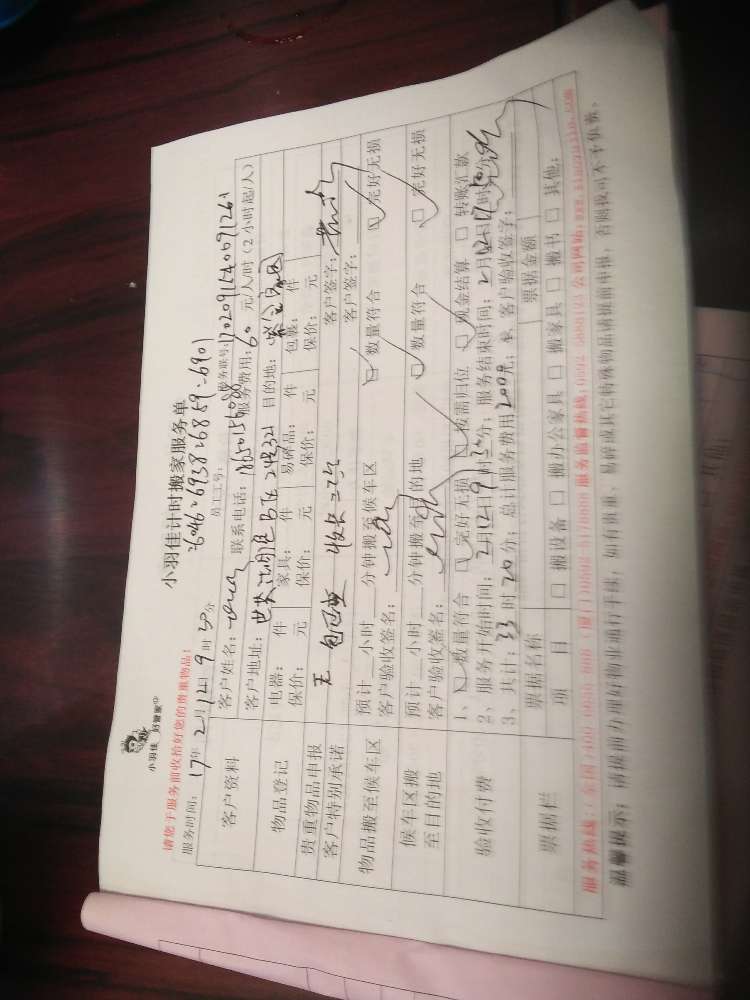 小羽佳 好管家
小羽佳计时搬家服务单
6046-6938-6859-6901
请您于服务前收拾好您的贵重物品:
员工工号:
服务时间: 17年 2月12日 9时30分
服务联号:
客户资料
客户姓名:
联系电话: 18650156088
服务费用: 60 元/人/时 (2小时起/人)
客户地址:
目的地:
物品登记
电器: 件 家具: 件 易碎品: 件 包裹: 件
保价: 元 保价: 元 保价: 元 保价: 元
贵重物品申报
无
客户签字:
客户特别承诺
客户签字:
物品搬至候车区
预计 小时 分钟搬至候车区 数量符合 完好无损
客户验收签名:
候车区搬至目的地
预计 小时 分钟搬至目的地 数量符合 完好无损
客户验收签名:
验收付费
1、 数量符合 完好无损 按需归位 现金结算 转账汇款
2、服务开始时间: 2月12日9时30分; 服务结束时间: 2月12日17时50分
3、共计: 33时20分; 总计服务费用2000元; 客户验收签字:
票据栏
票据名称 票据金额
项 目 搬设备 搬办公家具 搬家具 搬书 其他:
温馨提示: 请提前办理好物业通行手续, 如有贵重、易碎或其它特殊物品请提前申报, 否则我司不予负责。